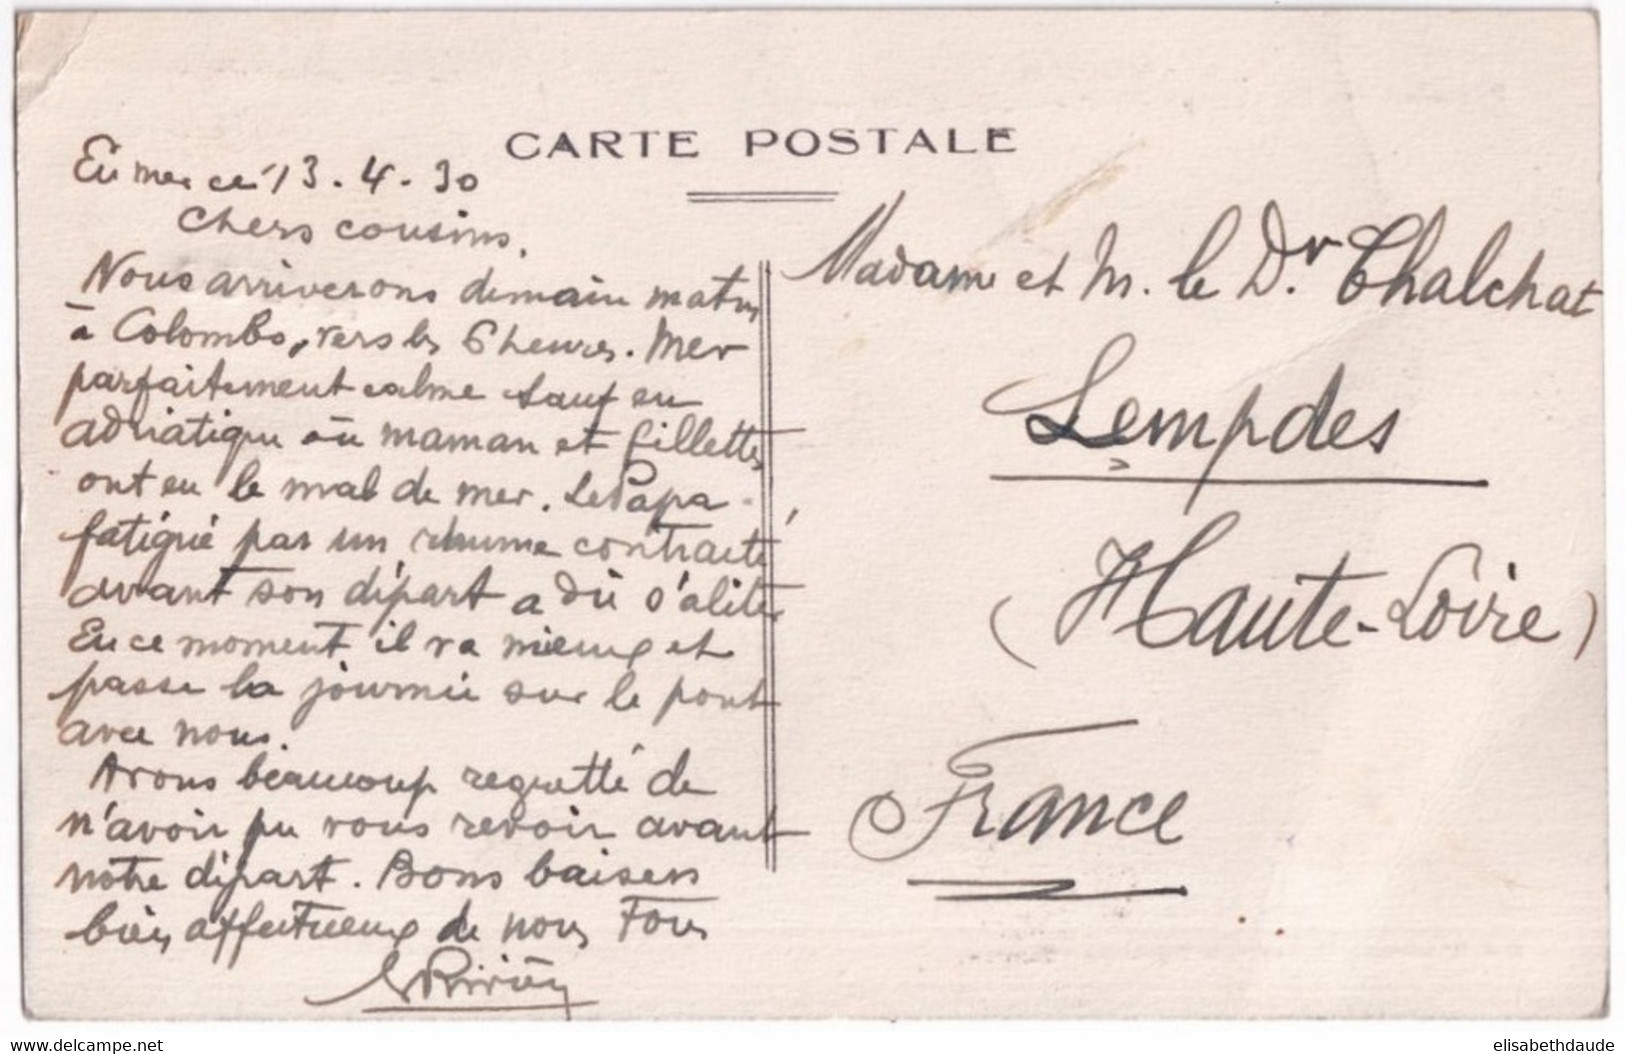 CARTE POSTALE
En mer ce 13-4-30
Chers cousins.
Nous arriverons demain matin
à Colombo, vers les 6 heures. Mer
parfaitement calme sauf en
adriatique où maman et fillettes
ont eu le mal de mer. Le Papa
fatigué par un rhume contracté
avant son départ a dû s'aliter
En ce moment il va mieux et
passe la journée sur le pont
avec nous.
Avons beaucoup regretté de
n'avoir pu vous revoir avant
notre départ. Bons baisers
bien affectueux de nous tous
Madame et M. le Dr. Chalchat
Lempdes
(Haute-Loire)
France
www.delcampe.net
elisabethdaude